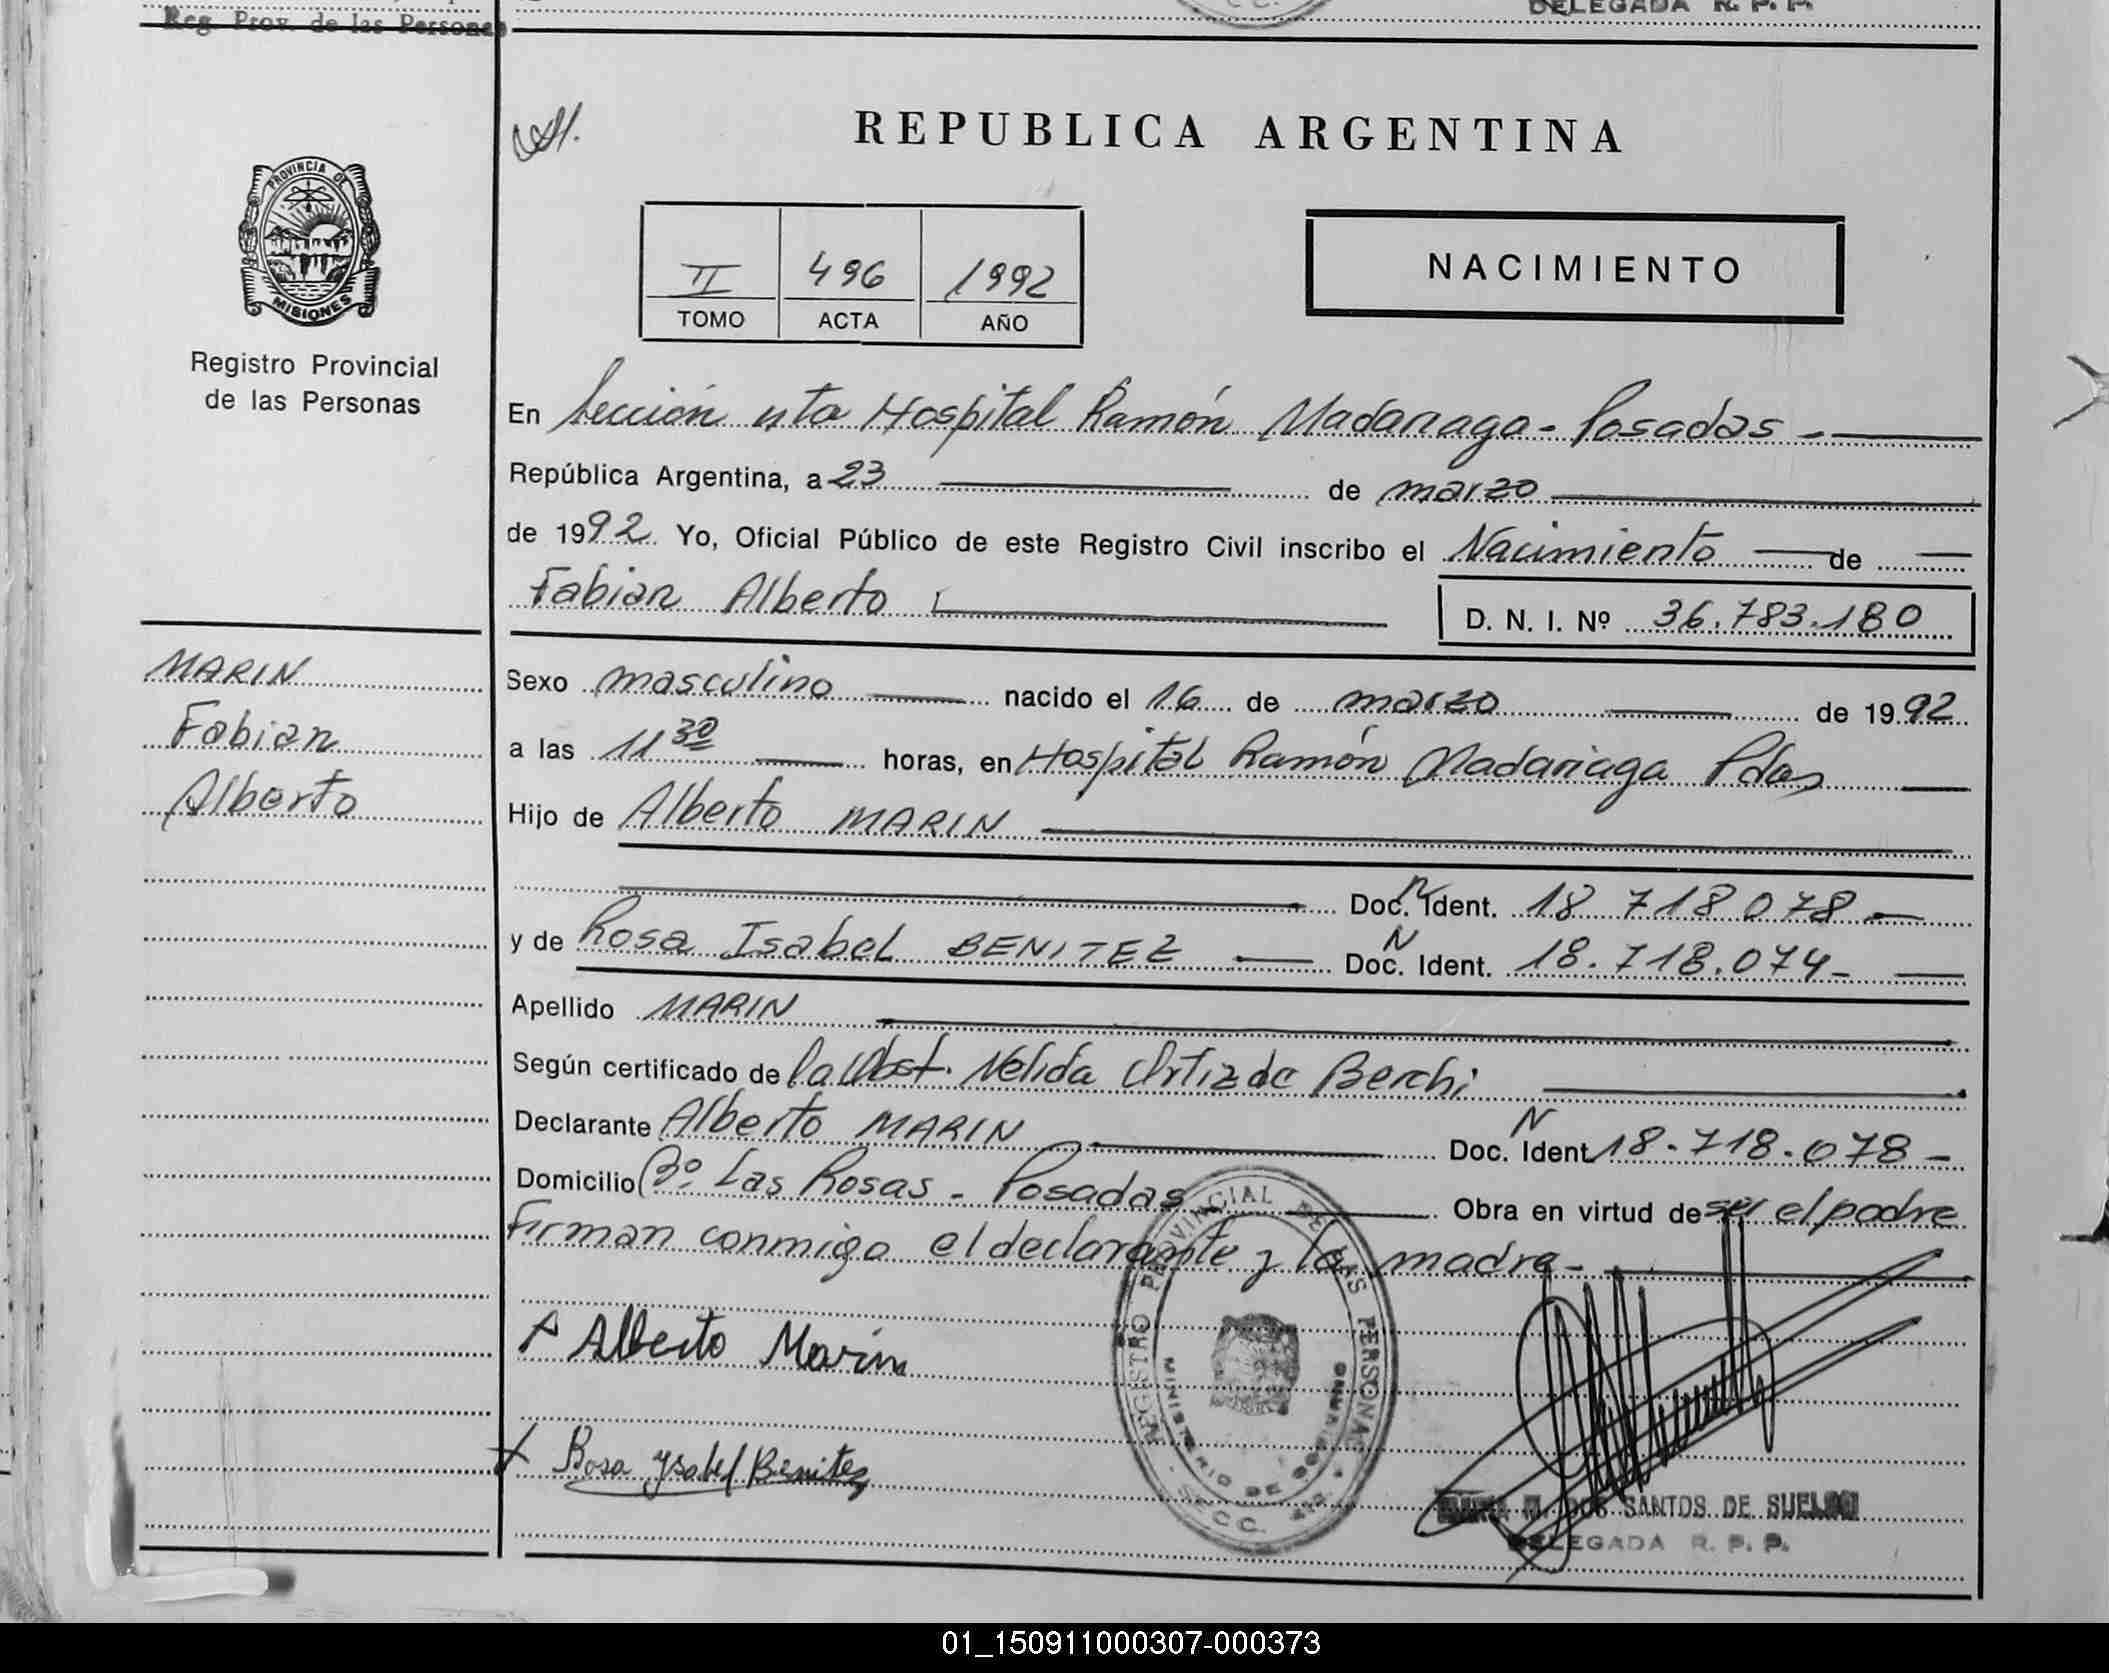 Reg. Prov. de las Personas
DELEGADA R. P. P.
REPUBLICA ARGENTINA
PROVINCIA DE
MISIONES
Registro Provincial
de las Personas
II 496 1992
TOMO ACTA AÑO
NACIMIENTO
En Sección 4ta Hospital Ramón Madariaga - Posadas -
República Argentina, a 23 de marzo
de 1992. Yo, Oficial Público de este Registro Civil inscribo el Nacimiento de
Fabian Alberto
D. N. I. Nº 36.783.180
MARIN
Fabian
Alberto
Sexo masculino nacido el 16 de marzo de 1992
a las 11 30 horas, en Hospital Ramón Madariaga Pdas
Hijo de Alberto MARIN
Doc. N Ident. 18 718 078 -
y de Rosa Isabel BENITEZ Doc. N Ident. 18.718.074 -
Apellido MARIN
Según certificado de la Obst. Nelida Ortiz de Berchi
Declarante Alberto MARIN Doc. N Ident 18.718.078 -
Domicilio Bº Las Rosas - Posadas Obra en virtud de ser el padre
Firman conmigo el declarante y la madre -
Alberto Marin
Rosa Ysabel Benitez
REGISTRO PROVINCIAL DE LAS PERSONAS
MINISTERIO DE GOBIERNO
SECC. 4ta
DOS SANTOS DE
DELEGADA R. P. P.
01_150911000307-000373